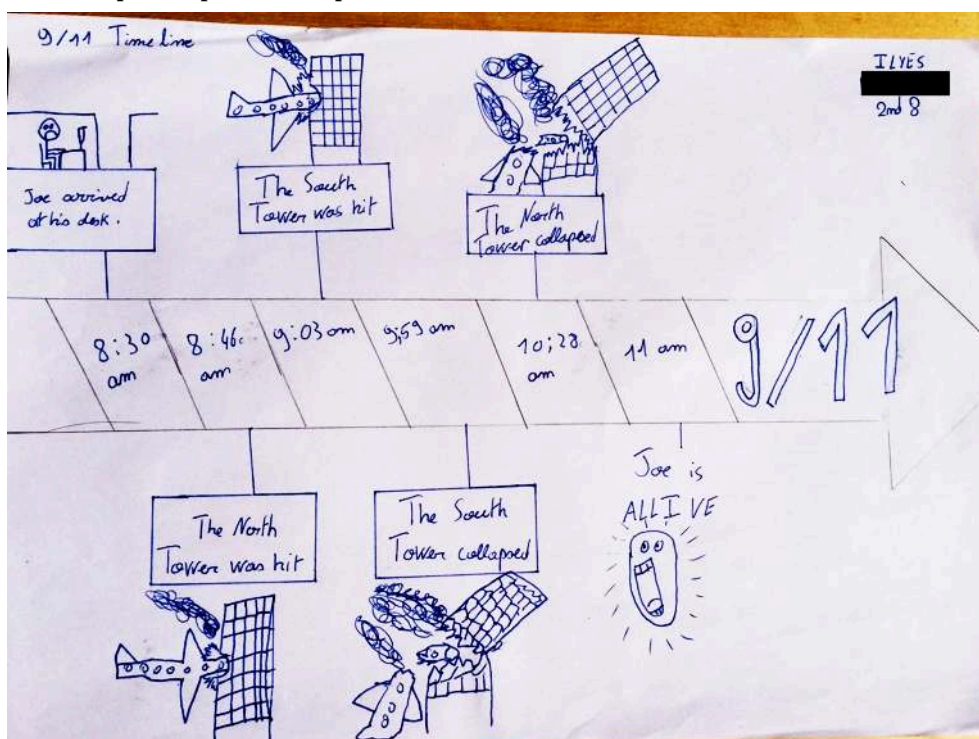 9/11 Timeline
ILYES
2nd 8
Joe arrived
at his desk.
The South
Tower was hit
The North
Tower collapsed
8:30
am
8:46
am
9:03 am
9;59 am
10;28
am
11 am
9/11
The North
Tower was hit
The South
Tower collapsed
Joe is
ALLIVE